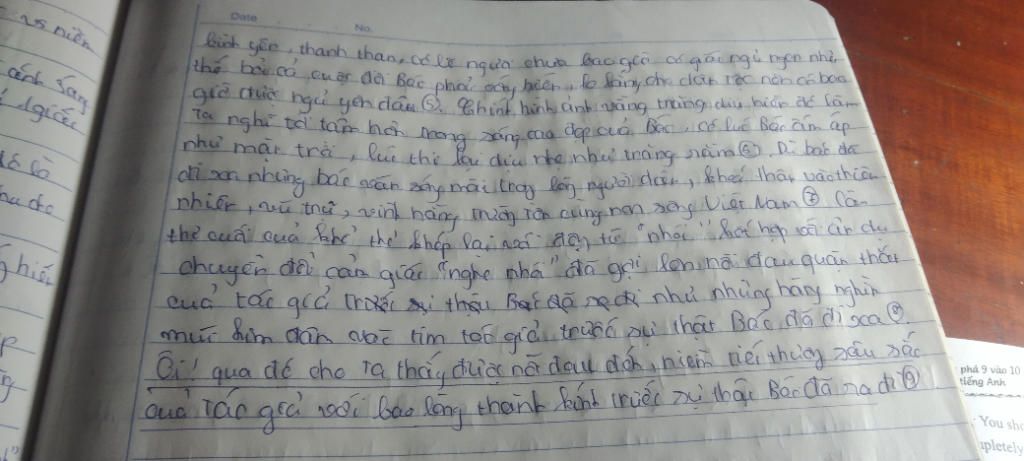 25 niên
ánh sáng
giấc
là
cho
hiến
Date
No.
bình yên, thanh than, có lẽ người chưa bao giờ có giấc ngủ ngon như
thế bởi cả cuộc đời Bác phải cống hiến, lo lắng cho dân tộc nên có bao
giờ được ngủ yên đâu ⑤. Chính hình ảnh vầng trăng dịu hiền đã làm
ta nghĩ tới tâm hồn trong sáng cao đẹp của Bác, có lúc Bác ấm áp
như mặt trời, lúc thì lại dịu nhẹ như trăng rằm ⑥. Dù bác đã
đi xa nhưng bác vẫn sống mãi trong lòng người dân, hóa thân vào thiên
nhiên, vũ trụ, vĩnh hằng trường tồn cùng non sông Việt Nam ⑦ Câu
thơ cuối của khổ thơ khép lại với động từ "nhói" kết hợp với ẩn dụ
chuyển đổi cảm giác "nghe nhói" đã gợi lên nỗi đau quặn thắt
cuả tác giả trước sự thật Bác đã ra đi như những hàng nghìn
mũi kim đâm vào tim tác giả trước sự thật Bác đã đi xa ⑧.
Ôi! qua đó cho ta thấy được nỗi đau đớn, niềm tiếc thương sâu sắc
của tác giả với bao lòng thành kính trước sự thật Bác đã ra đi ⑨
phá 9 vào 10
tiếng Anh
You sho
mpletely